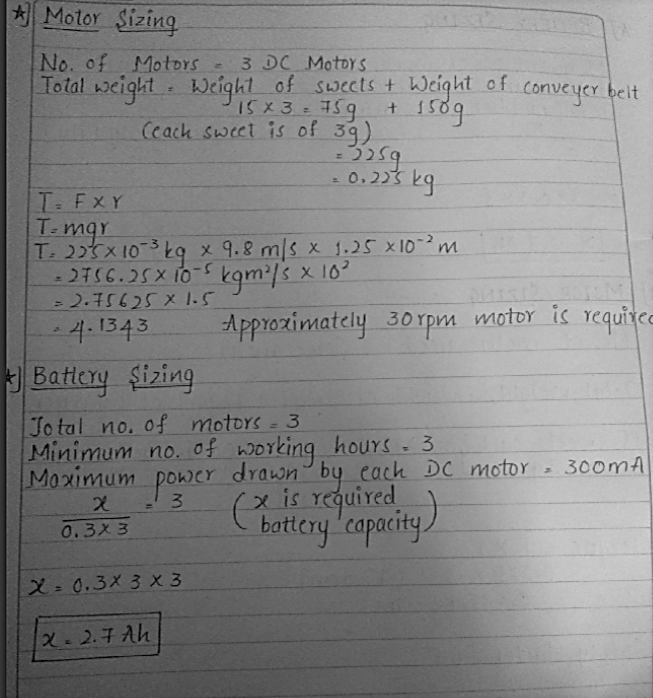 *] Motor Sizing
No. of Motors = 3 DC Motors
Total weight = Weight of sweets + Weight of conveyer belt
15 x 3 = 75g + 150g
(each sweet is of 3g)
= 225g
= 0.225 kg
T = F x r
T = mgr
T = 225 x 10⁻³ kg x 9.8 m/s x 1.25 x 10⁻² m
= 2756.25 x 10⁻⁵ kgm²/s x 10²
= 2.75625 x 1.5
= 4.1343 Approximately 30 rpm motor is required
*] Battery Sizing
Total no. of motors = 3
Minimum no. of working hours = 3
Maximum power drawn by each DC motor = 300mA
x / 0.3 x 3 = 3 (x is required
battery capacity)
x = 0.3 x 3 x 3
x = 2.7 Ah